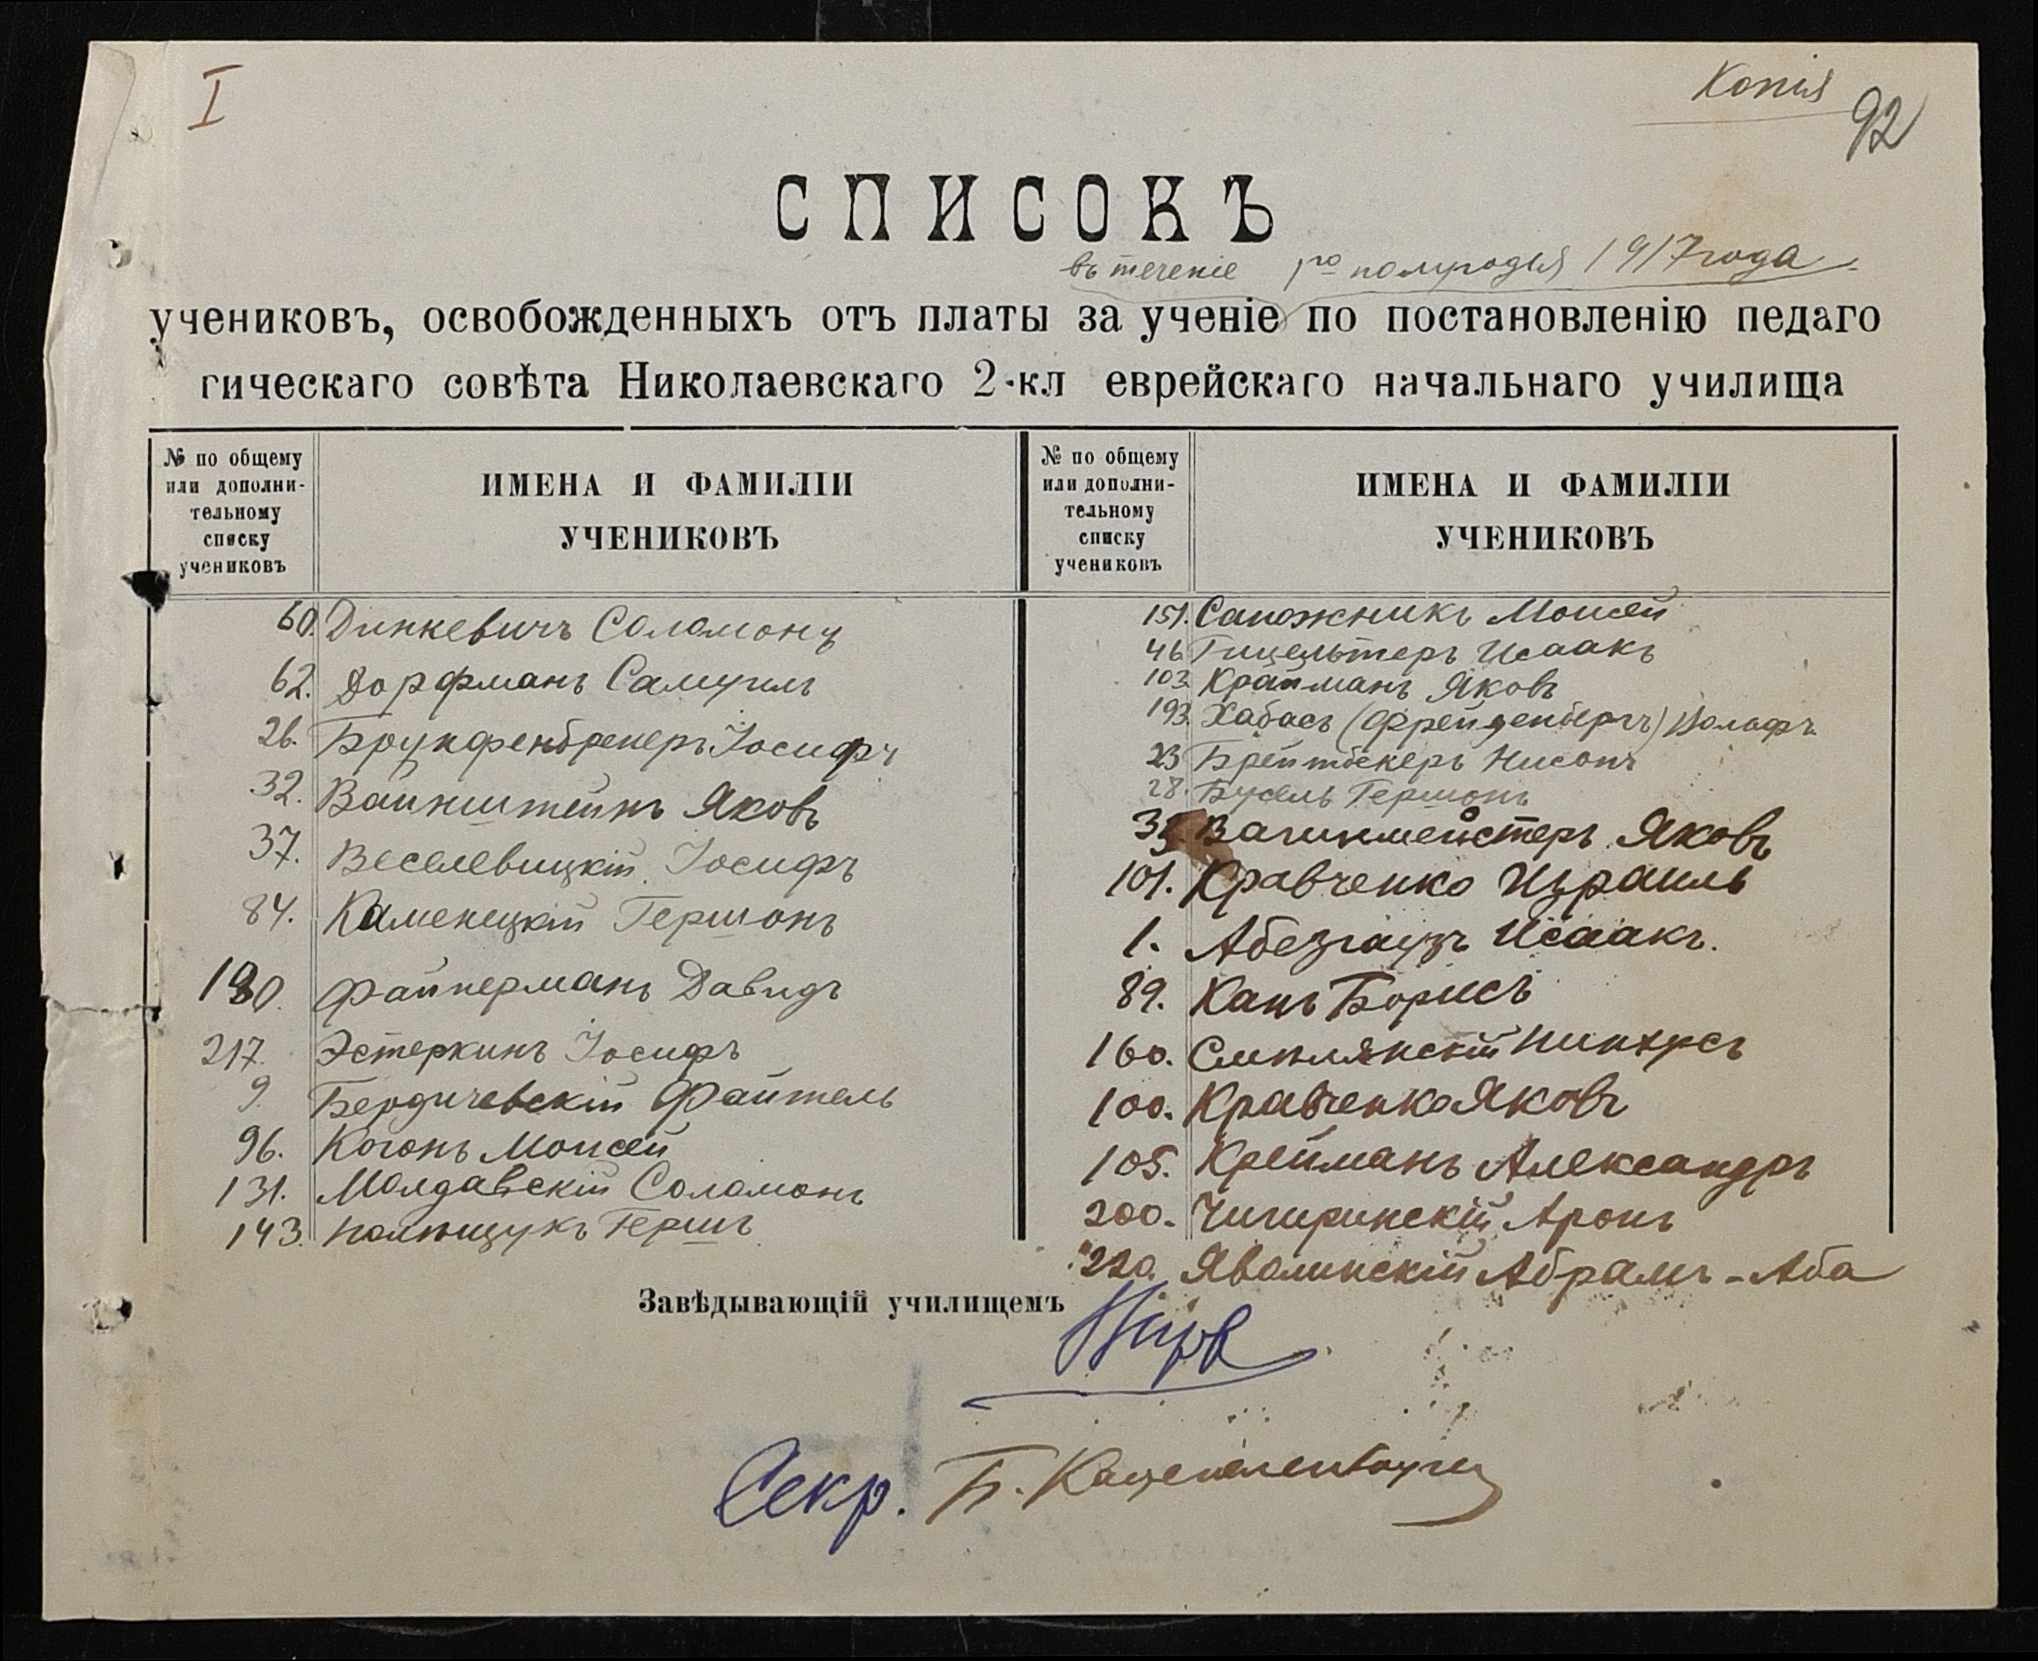 I
Копія
92
СПИСОКЪ
въ теченіе 1го полугодія 1917 года
учениковъ, освобожденныхъ отъ платы за ученіе по постановленію педаго
гическаго совѣта Николаевскаго 2-кл еврейскаго начальнаго училища
№ по общему или дополни-тельному списку учениковъ
ИМЕНА И ФАМИЛІИ УЧЕНИКОВЪ
№ по общему или дополни-тельному списку учениковъ
ИМЕНА И ФАМИЛІИ УЧЕНИКОВЪ
60. Динкевичъ Соломонъ
62. Дорфманъ Самуилъ
26.Броунфенбренеръ Іосифъ
32. Вайнштейнъ Яковъ
37. Веселевицкій Іосифъ
84. Каменецкій Гершонъ
190. Файнерманъ Давидъ
217. Эстеркинъ Іосифъ
9. Бердичевскій Файтель
96. Когонъ Моисей
131. Молдавскій Соломонъ
143. Полищукъ Гершъ
151. Сапожникъ Моисей
46 Гицельтеръ Исаакъ
103 Крайманъ Яковъ
193. Хабасъ (Фрейденбергъ) Вольфъ
23 Брейтбекеръ Нисонъ
28. Бусель Гершонъ
Вагинмейстеръ Яковъ
101. Кравченко Израиль
1. Абезгаузъ Исаакъ.
89. Канъ Борисъ
160. Смилянскій Пинхусъ
100. Кравченко Яковъ
105. Крейманъ Александръ
200. Чигиринскій Аронъ
220. Яволинскій Абрамъ-Аба
Завѣдывающій училищемъ
Секр. Б.